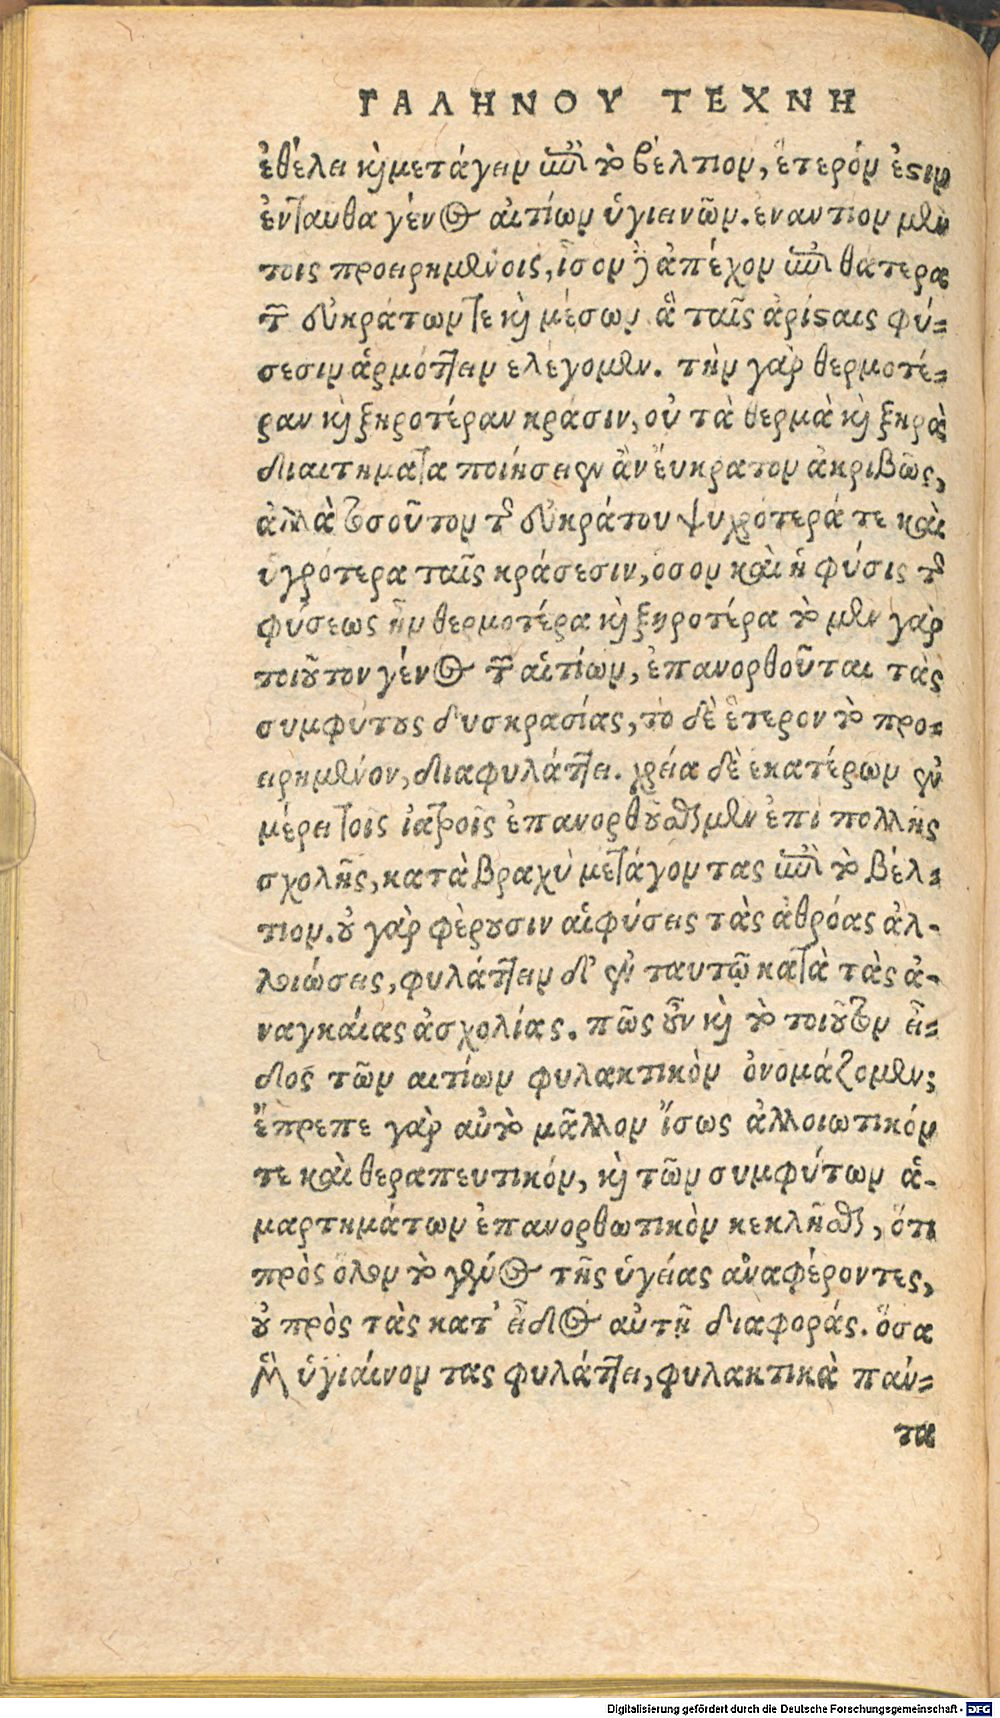 ΓΑΛΗΝΟΥ ΤΕΧΝΗ
ἐθέλει κὶ μετάγειν ἐπὶ τὸ βέλτιον, ἕτερόν ἐστιν
ἐνταυθα γένος αιτίων ὑγιεινῶν. εναντιον μὲν
τοις προειρημένοις, ἴσον δὲ ἀπέχον ἐπὶ θάτερα
τῶν εὐκράτων τε κὶ μέσων ἃ ταῖς ἀρίσταις φύ-
σεσιν ἁρμόττειν ελέγομεν. τὴν γὰρ θερμοτέ-
ραν κὶ ξηροτέραν κράσιν, οὐ τὰ θερμὰ κὶ ξηρὰ
διαιτηματα ποιήσειεν ἂν ἔυκρατον ἀκριβῶς,
ἀλλὰ τοσοῦτον τοῦ εὐκράτου ψυχρότερά τε καὶ
ὑγρότερα ταῖς κράσεσιν, ὁσον καὶ ἡ φύσις τοῦ
φύσεως ἦν θερμοτέρα κὶ ξηροτέρα τὸ μὲν γὰρ
τοιοῦτον γένος τῶν αἰτίων, ἐπανορθοῦται τὰς
συμφύτους δυσκρασίας, τὸ δὲ ἕτερον τὸ προ-
ειρημένον, διαφυλάττει. χρεία δὲ ἑκατέρων ἐν
μέρει τοῖς ἰατροῖς ἐπανορθοῦσθαι μὲν ἐπὶ πολλῆς
σχολῆς, κατὰ βραχὺ μετάγοντας ἐπὶ τὸ βέλ-
τιον. οὐ γὰρ φέρουσιν αἱ φύσεις τὰς ἀθρόας ἀλ-
λοιώσεις, φυλάττειν δ' ἐν ταυτῷ κατὰ τὰς ἀ-
ναγκαίας ἀσχολίας. πῶς οὖν κὶ τὸ τοιοῦτον εἶ-
δος τῶν αιτίων φυλακτικὸν ὀνομάζομεν;
ἔπρεπε γὰρ αὐτὸ μᾶλλον ἴσως ἀλλοιωτικόν
τε καὶ θεραπευτικόν, κὶ τῶν συμφύτων ἁ-
μαρτημάτων ἐπανορθωτικὸν κεκλῆσθαι, ὅτι
πρὸς ὅλον τὸ γένος τῆς ὑγείας ἀναφέροντες,
οὐ πρὸς τὰς κατ' εἶδος αὐτῇ διαφοράς. ὅσα
μὲν ὑγιαίνοντας φυλάττει, φυλακτικὰ πάν-
τα
Digitalisierung gefördert durch die Deutsche Forschungsgemeinschaft - DFG